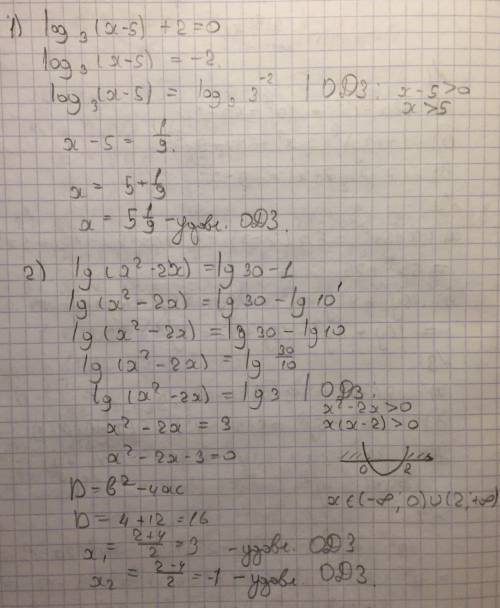 1) log₃(x-5) + 2 = 0
log₃(x-5) = -2.
log₃(x-5) = log₃ 3⁻² | ОДЗ: x-5>0
x>5
x - 5 = 1/9.
x = 5 + 1/9
x = 5 1/9 - удовл. ОДЗ.
2) lg(x² - 2x) = lg 30 - 1
lg(x² - 2x) = lg 30 - lg 10¹
lg(x² - 2x) = lg 30 - lg 10
lg(x² - 2x) = lg 30/10
lg(x² - 2x) = lg 3 | ОДЗ:
x² - 2x > 0
x² - 2x = 3 x(x-2) > 0
x² - 2x - 3 = 0
0 2
D = b² - 4ac x∈(-∞, 0)∪(2, +∞)
D = 4 + 12 = 16
x₁ = (2+4)/2 = 3 - удовл. ОДЗ
x₂ = (2-4)/2 = -1 - удовл. ОДЗ.